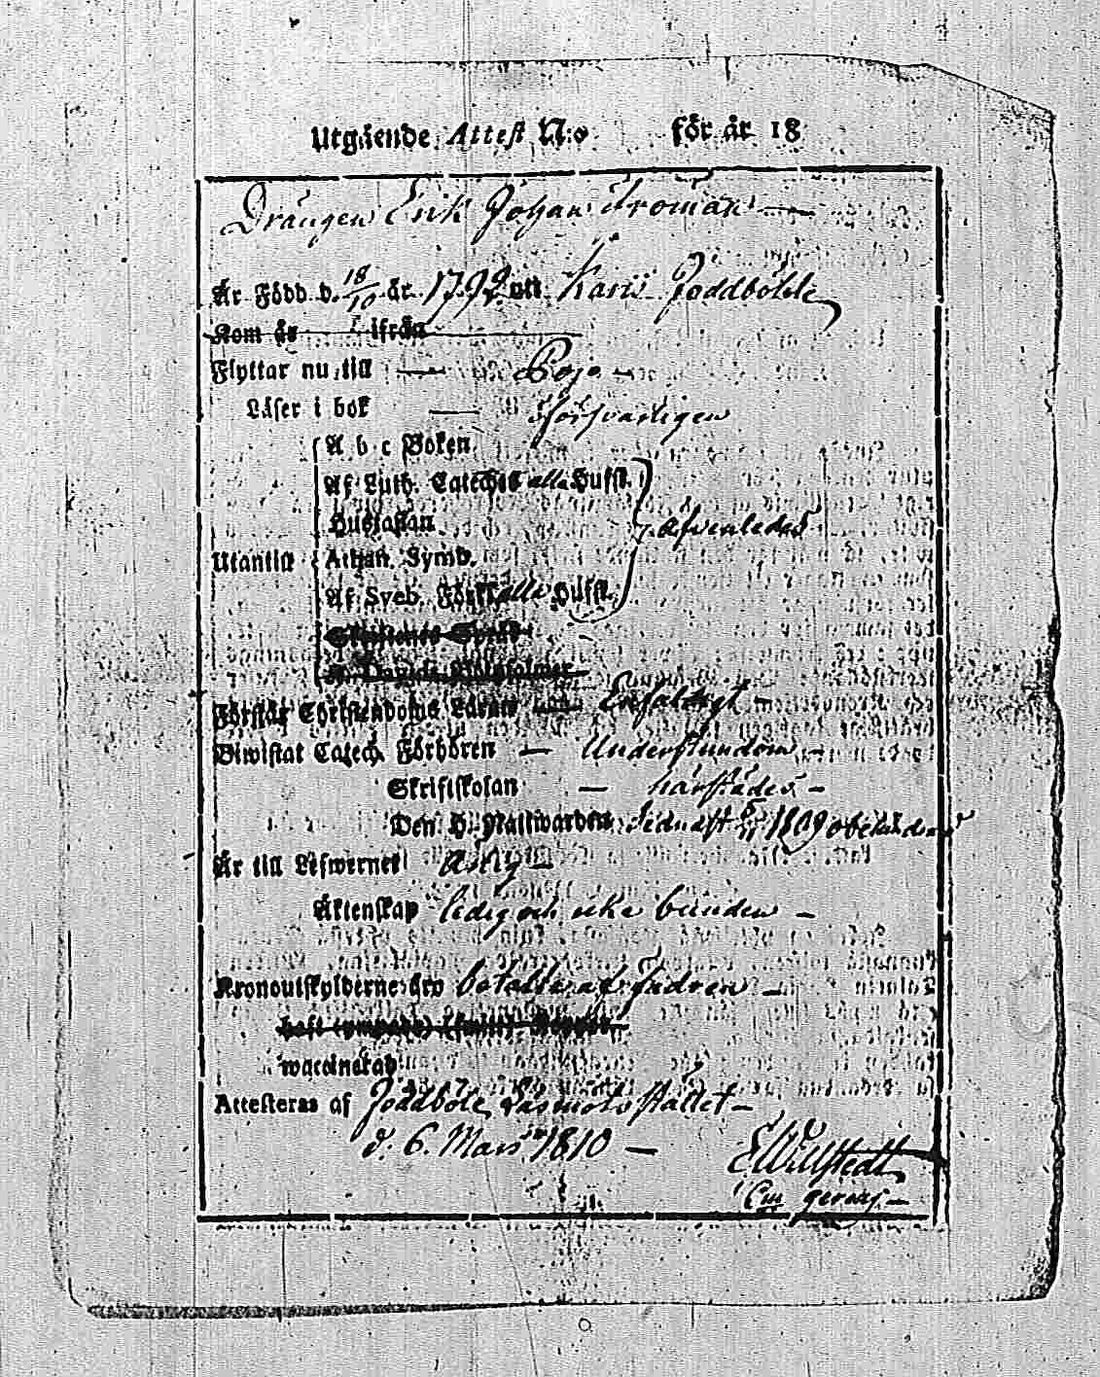 Utgående Attest N:o för år 18
Drängen Erik Johan Froman
Är Född d. 18/10 år 1792 uti Karis Joddböhle
Kom år ifrån
Flyttar nu till — Pojo —
Läser i bok — försvarligen
A b c Boken
Af Luth. Catéches alla Hufst.
Hustaflan
Utantill Athan. Symb. äfvenledes
Af Sveb. Förkl. alla Hufst.
Skriftenes Språk
Förstår Christendoms Läran Enfaldigt —
Biwistat Catech. Förhören — Understundom —
Skriftskolan — härstädes —
Den H. Nattwarden sednast 1809
Är till Lefwernet ärlig —
Äktenskap ledig och icke bunden —
Kronoutskylderne äro betalte af Fadren —
haft
waccinerad
Attesteras af Joddböle Läsmöts stället —
d. 6. Mars 1810 —